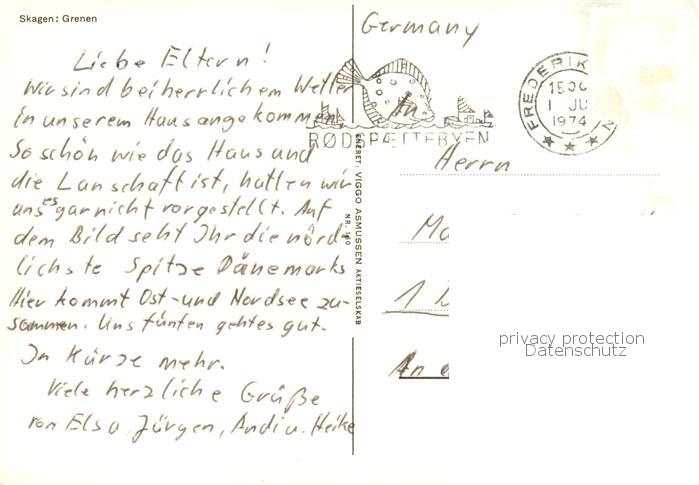 Skagen: Grenen
Liebe Eltern!
Wir sind bei herrlichem Wetter
in unserem Haus angekommen.
So schön wie das Haus und
die Lanschaft ist, hatten wir
uns es gar nicht vorgestellt. Auf
dem Bild seht Ihr die nörd-
lichste Spitze Dänemarks
Hier kommt Ost- und Nordsee zu-
sammen. Uns fünfen gehtes gut.
In Kürze mehr.
Viele herzliche Grüße
von Elsa, Jürgen, Andi u. Heike
ENERET: VIGGO ASMUSSEN AKTIESELSKAB
NR. 160
Germany
RØDSPÆTTEBYEN
FREDERIK N
1 JU
1974
An
Herrn
Ma
1
An
privacy protection
Datenschutz